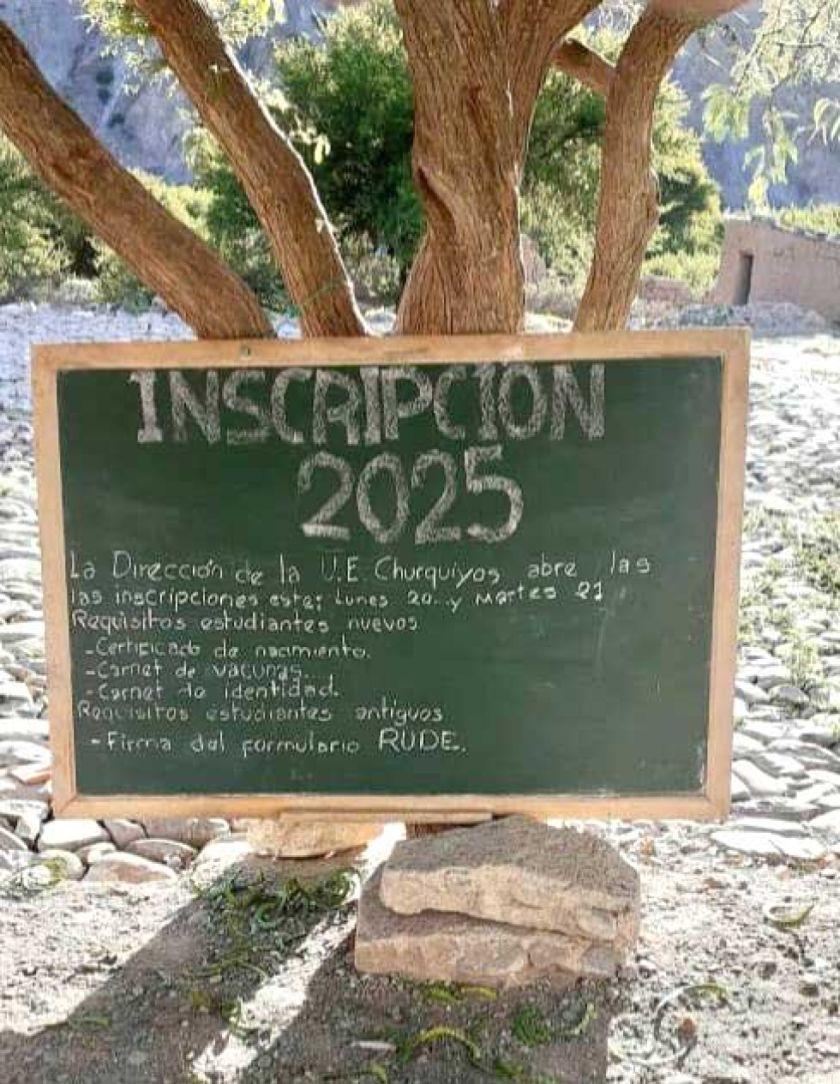 INSCRIPCIÓN
2025
La Dirección de la U.E. Churquiyos abre las
las inscripciones este: Lunes 20.. y Martes 21
Requisitos estudiantes nuevos
-Certificado de nacimiento.
-Carnet de vacunas.
-Carnet de identidad.
Requisitos estudiantes antiguos
-Firma del formulario RUDE.